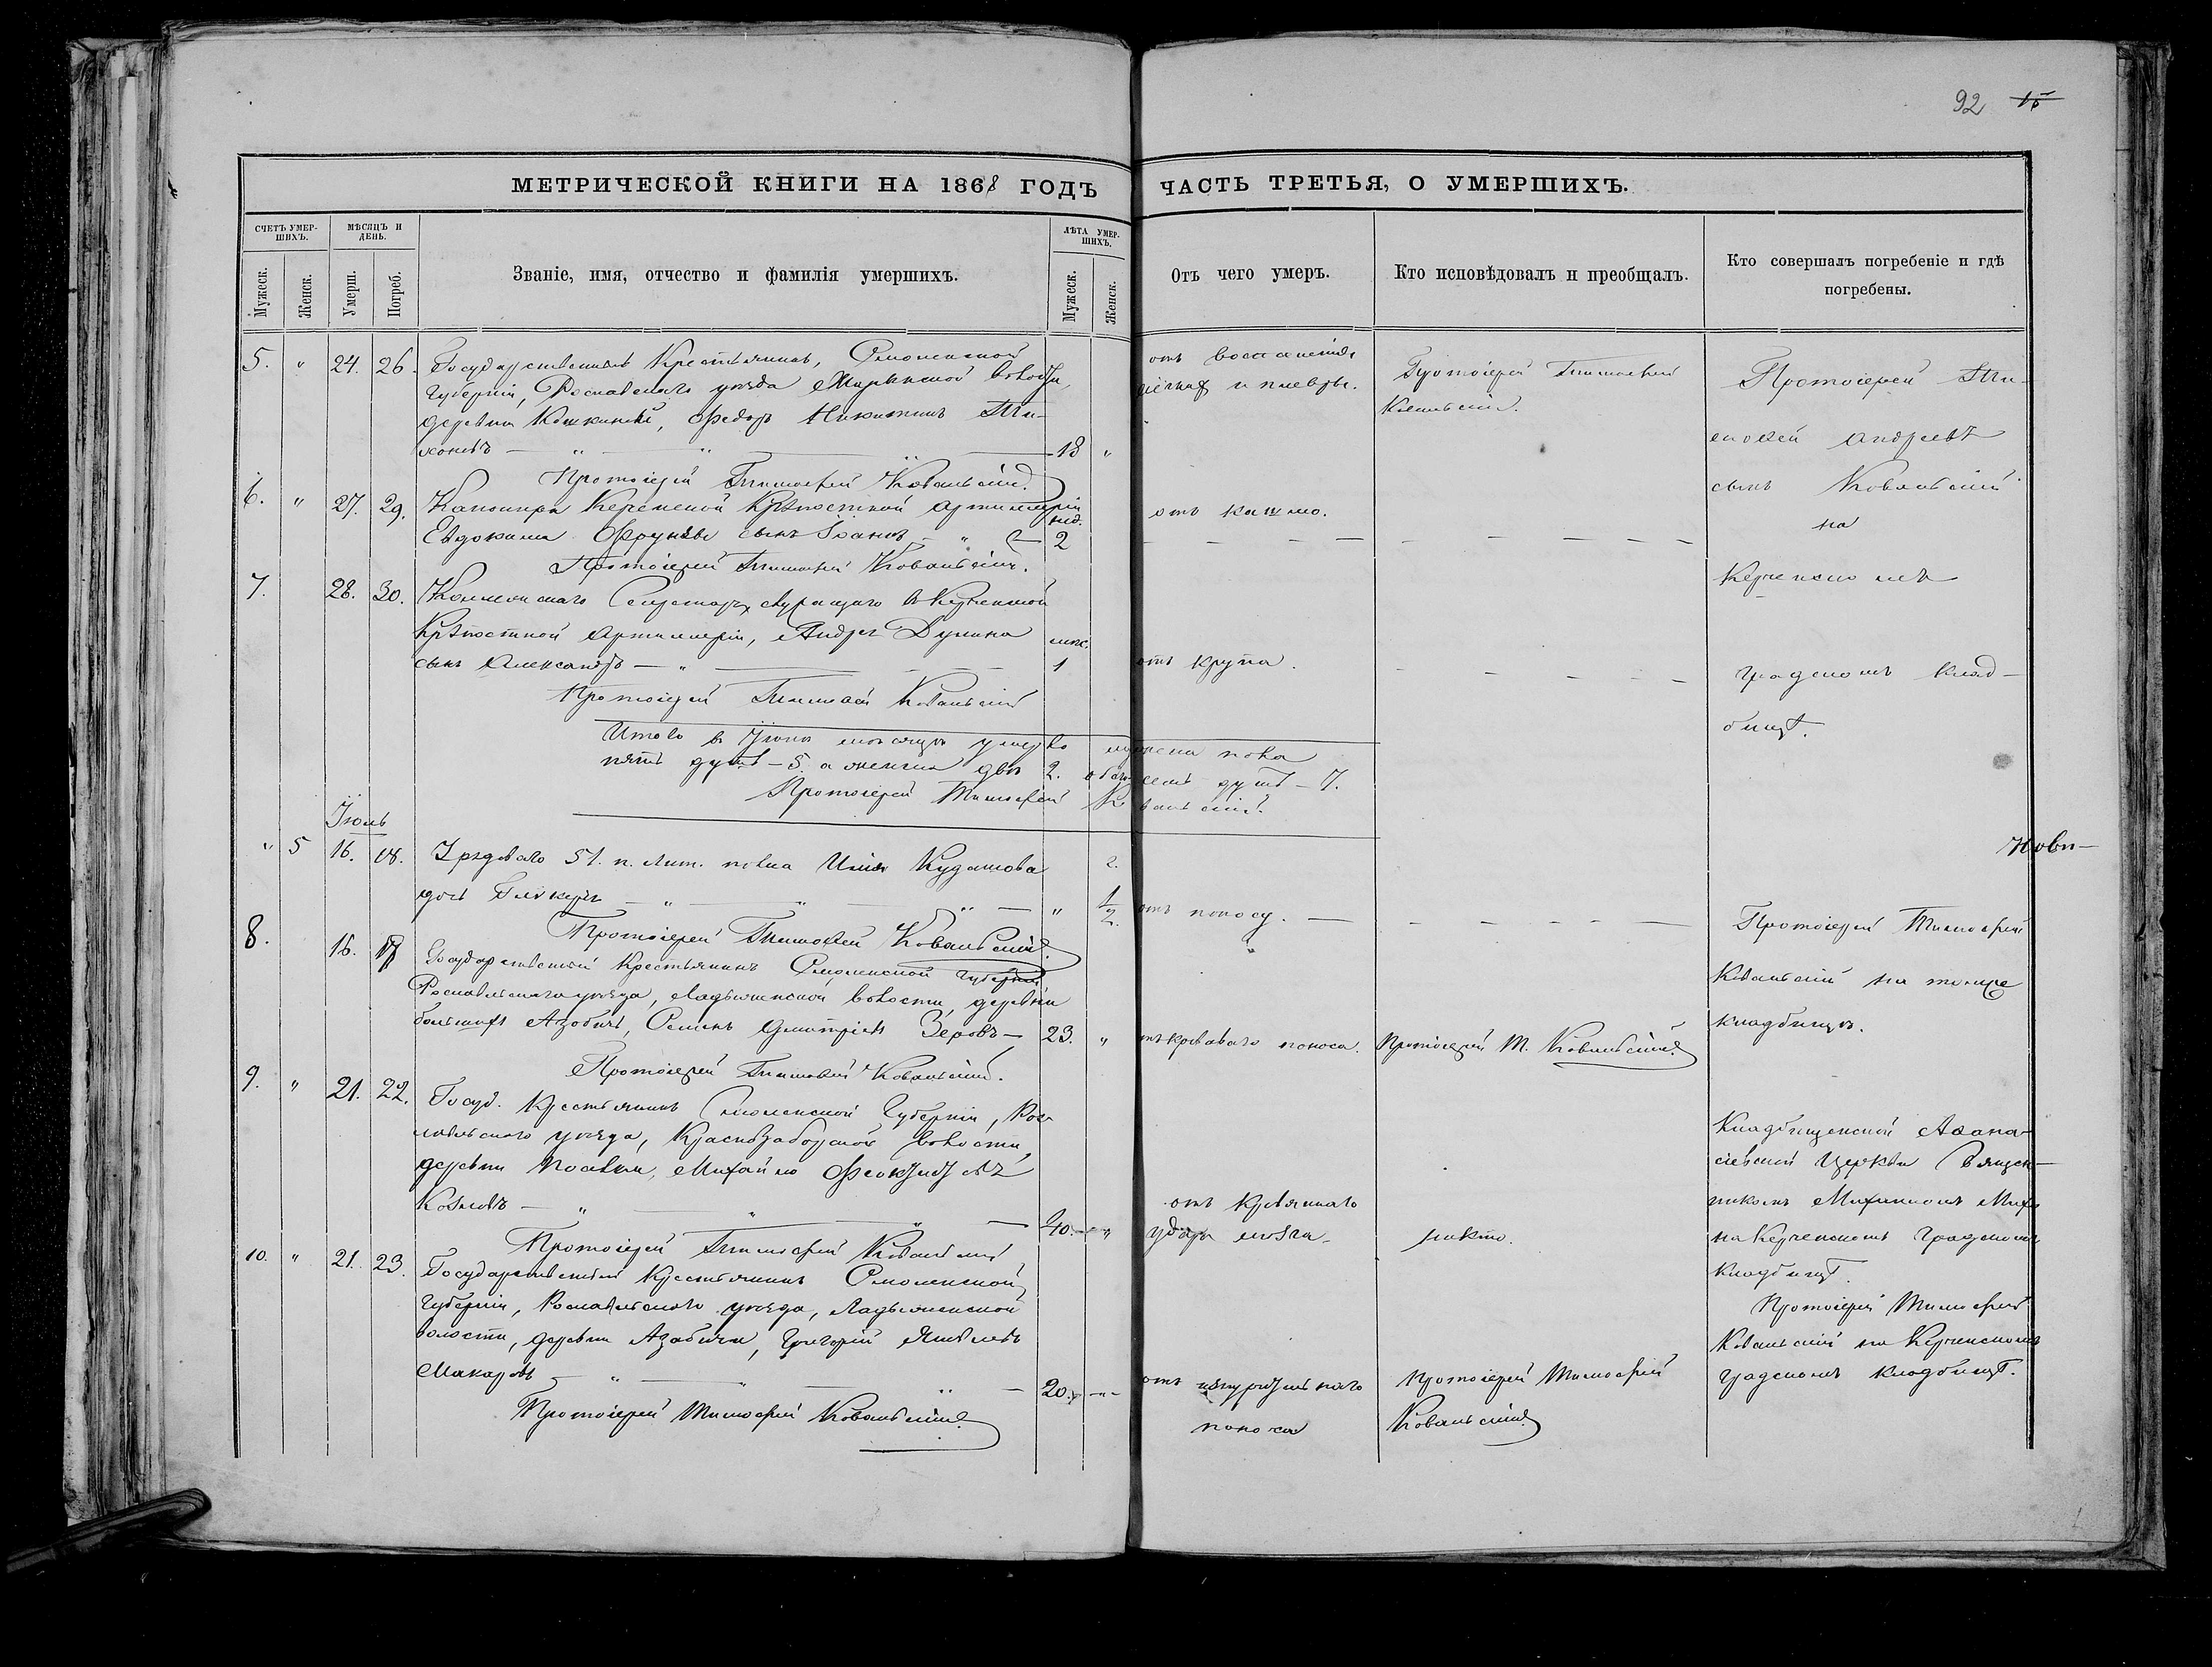 92 15
МЕТРИЧЕСКОЙ КНИГИ НА 1868 ГОДЪ ЧАСТЬ ТРЕТЬЯ, О УМЕРШИХЪ.
СЧЕТЪ УМЕР-
ШИХЪ.
МѢСЯЦЪ И
ДЕНЬ.
Званіе, имя, отчество и фамилія умершихъ.
ЛѢТА УМЕР-
ШИХЪ.
Отъ чего умеръ.
Кто исповѣдовалъ и преобщалъ.
Кто совершалъ погребеніе и гдѣ
погребены.
Мужеск.
Женск.
Умерш.
Погреб.
Мужеск.
Женск.
5. " 24. 26. Государственный Крестьянинъ, Смоленской
Губерніи, Рославльскаго уѣзда волости,
деревни Федоръ Никитинъ Ти-
хоновъ 18 "
отъ воспаленія
легкихъ и плевры.
Протоіерей Тимофей
Ковальскій.
Протоіерей Тимофей Ковальскій.
Протоіерей Ти-
мофей Андреевъ
сынъ Ковальскій
на
Керченскомъ
градскомъ клад-
бищѣ.
6. " 27. 29. Канонира Керченской Крѣпостной Артиллеріи
Евдокима сынъ Іоаннъ нед. 2
отъ кашлю.
Протоіерей Тимофей Ковальскій.
7. 28. 30. Коллежскаго Секретаря, служащаго въ Керченской
Крѣпостной Артиллеріи, Андрея Дунина
сынъ Александръ мѣс. 1
отъ крупа.
Протоіерей Тимофей Ковальскій
Итого въ Іюнѣ мѣсяцѣ умерло мужеска пола
пять душъ - 5. а женска двѣ 2. обоего семь душъ - 7.
Протоіерей Тимофей Ковальскій.
Іюль
" 5 16. 18. Рядоваго 51. п. Лит. полка Ильи Кудашова
дочь Гликерія " 2. 1/2
отъ поносу.
Протоіерей Тимофей Ковальскій.
Протоіерей Тимофей
Ковальскій на томже
кладбищѣ.
8. 16. Государственный Крестьянинъ Смоленской Губерніи
Рославльскаго уѣзда, волости, деревни
Азобичи, Семенъ Дмитріевъ Зеровъ 23. "
отъ кроваваго поноса.
Протоіерей Т. Ковальскій.
Протоіерей Тимофей Ковальскій.
9. " 21. 22. Госуд. Крестьянинъ Смоленской Губерніи, Рос-
лавльскаго уѣзда, Краснозаборской волости,
деревни Михайло
Козловъ 40. "
отъ кровянаго
удара мозга
никто.
Протоіерей Тимофей Ковальскій
Кладбищенской Афана-
сіевской Церкви Священ-
никомъ Михаиломъ
на Керченскомъ Градскомъ
кладбищѣ.
10. " 21. 23. Государственный Крестьянинъ Смоленской
Губерніи, Рославльскаго уѣзда, волости,
деревни Азабичи, Григорій Яковлевъ
Макаровъ 20.
отъ изнурительнаго
поноса
Протоіерей Тимофей
Ковальскій.
Протоіерей Тимофей
Ковальскій на Керченскомъ
градскомъ кладбищѣ.
Протоіерей Тимофей Ковальскій.